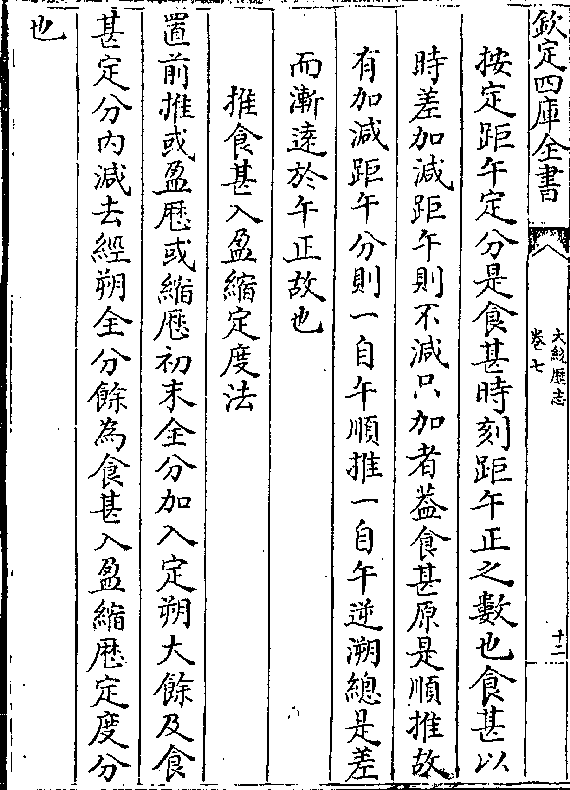 欽定四庫全書
大統歴志
卷七
十二
按定距午定分是食甚時刻距午正之數也食甚以
時差加減距午則不減只加者葢食甚原是順推故
有加減距午分則一自午順推一自午逆溯總是差
而漸逺於午正故也
推食甚入盈縮定度法
置前推或盈歴或縮歴初末全分加入定朔大餘及食
甚定分内減去經朔全分餘為食甚入盈縮歴定度分
也